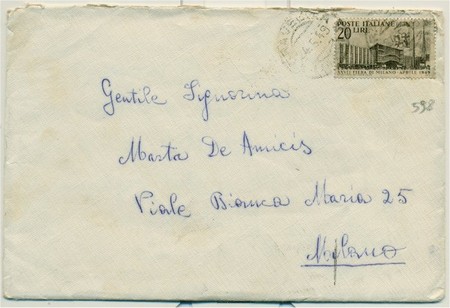 POSTE ITALIANE
20 LIRE
XXVII FIERA DI MILANO - APRILE 1949
598
Gentile Signorina
Marta De Amicis
Viale Bianca Maria 25
Milano